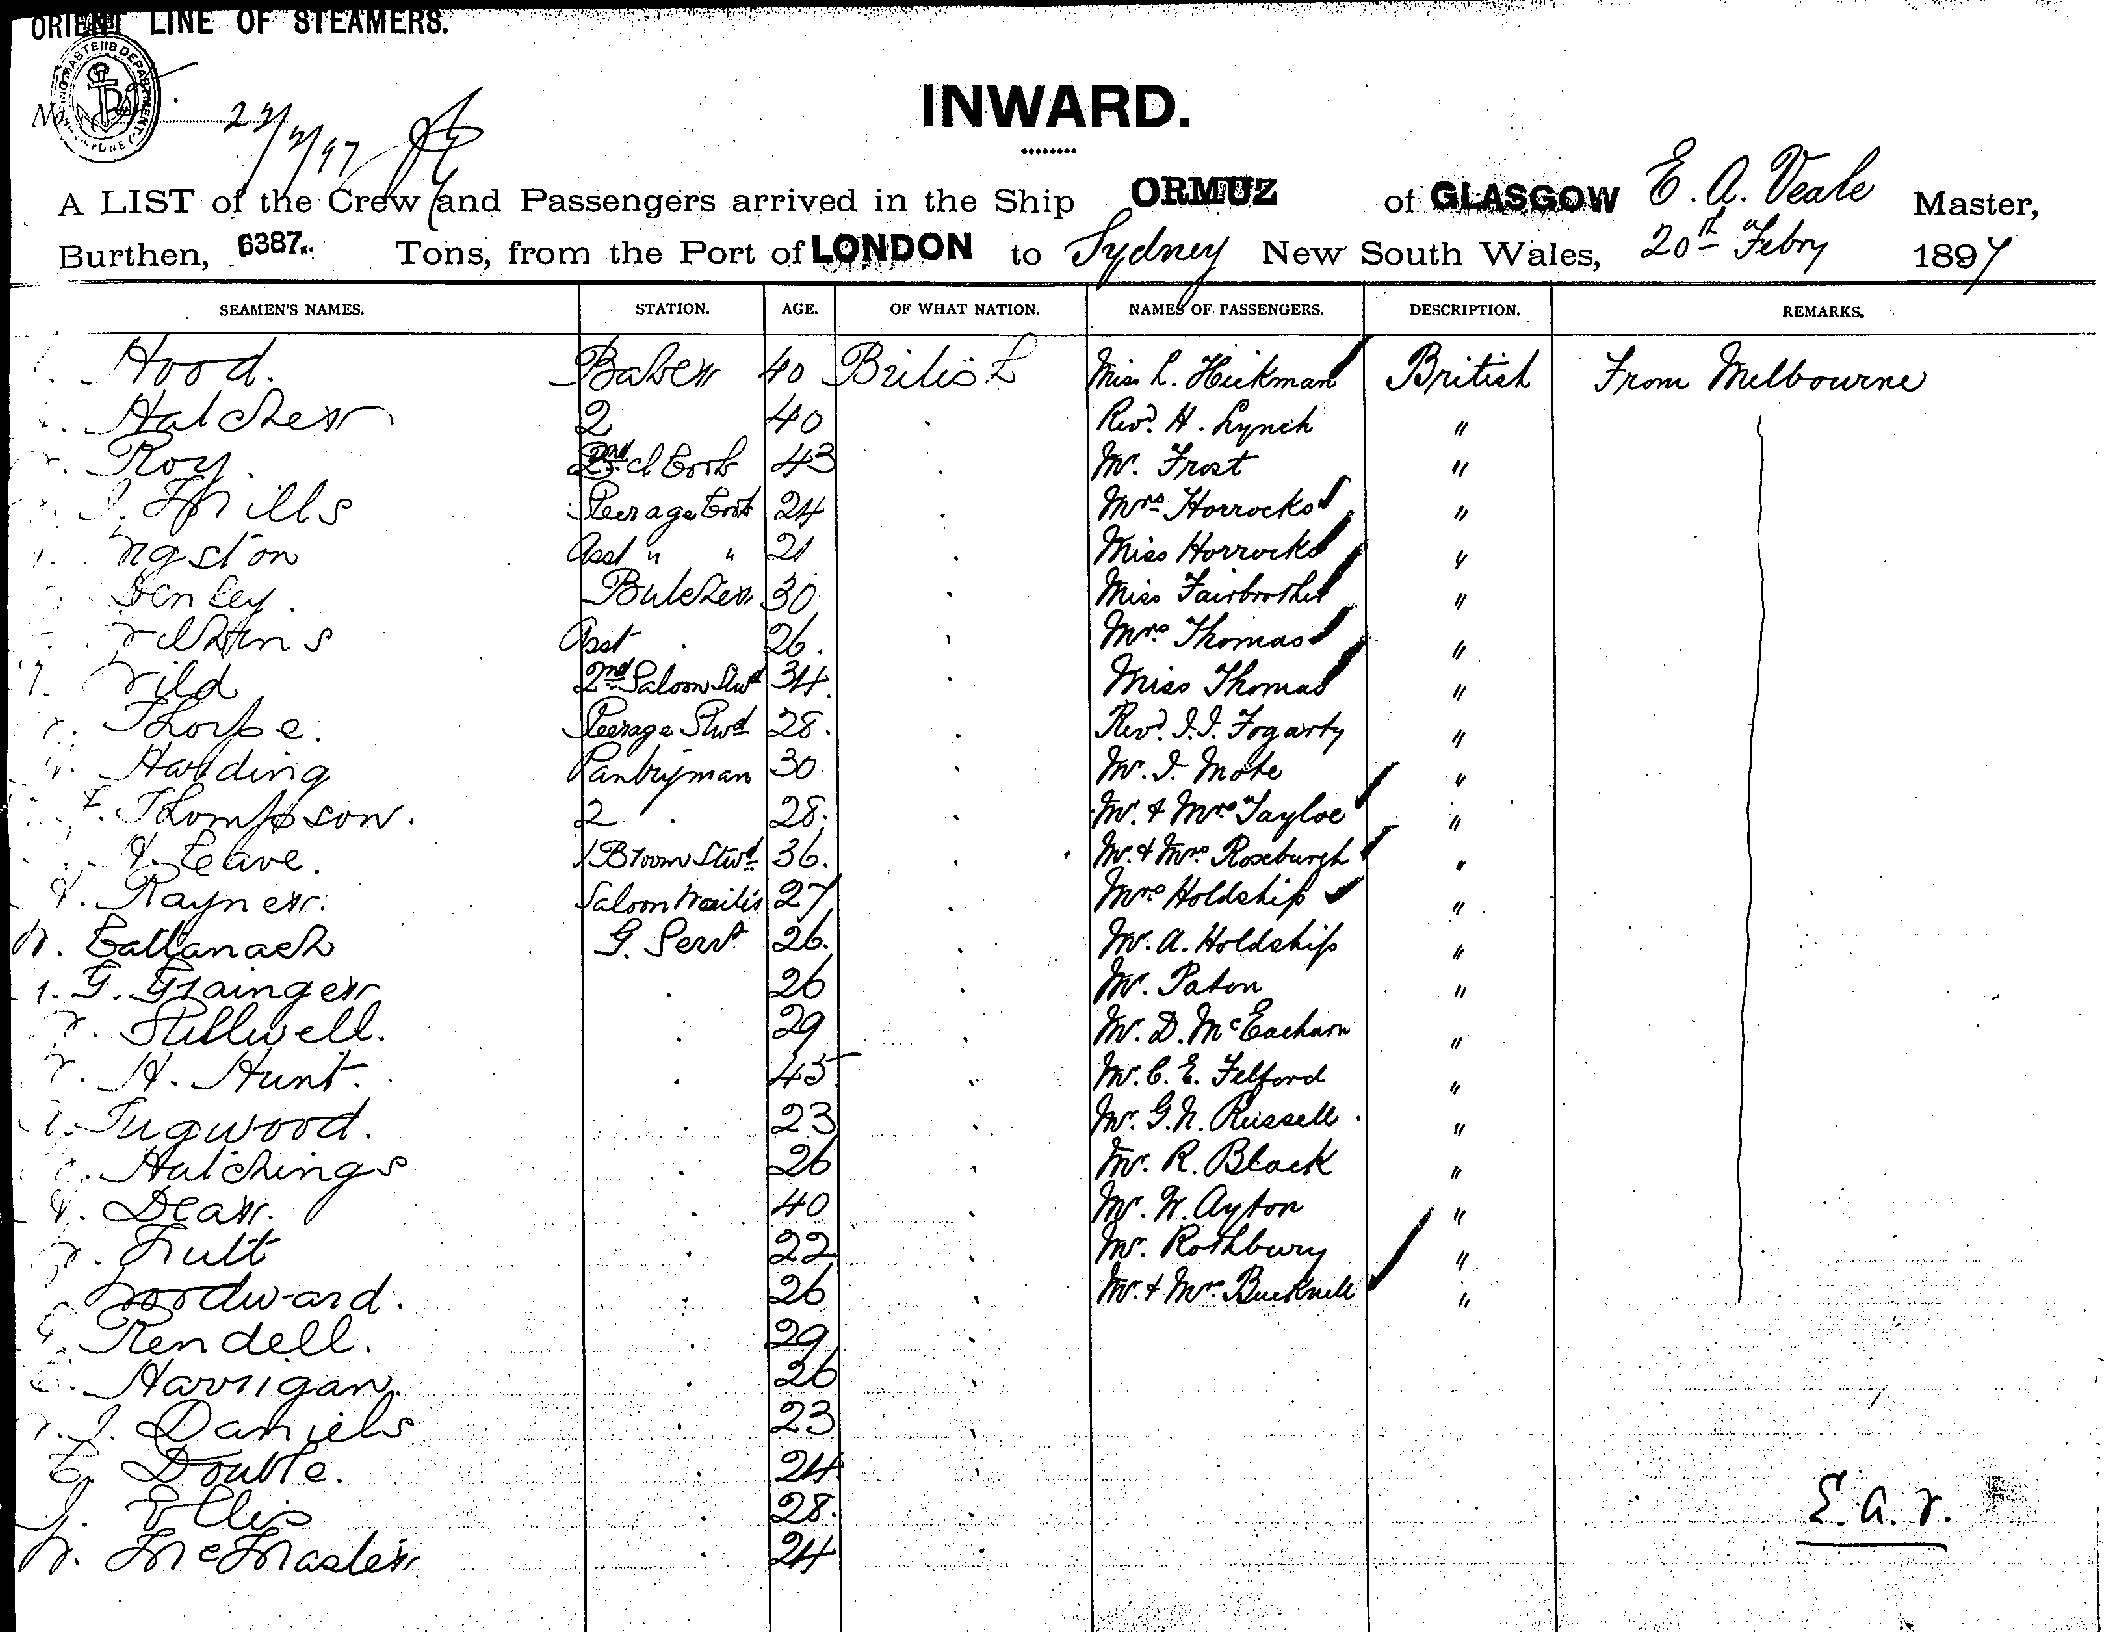 ORIENT LINE OF STEAMERS.
INWARD.
A LIST of the Crew and Passengers arrived in the Ship ORMUZ of GLASGOW E. A. Veale Master,
Burthen, 6387.. Tons, from the Port of LONDON to Sydney New South Wales, 20th Febry 1897
SEAMEN'S NAMES. STATION. AGE. OF WHAT NATION. NAMES OF PASSENGERS. DESCRIPTION. REMARKS.
Hood. Baker 40 British Miss L. Hickman British From Melbourne
Hatcher 2 40 Revd. H. Lynch "
Roy. 2nd Cl Cook 43 Mr. Frost "
Mills Steerage Cook 24 Mrs Horrocks "
Asst " " 21 Miss Horrocks "
Henley. Butcher 30 Miss Fairbrother "
Asst 26. Mrs Thomas "
Wild 2nd Saloon Stwd 34 Miss Thomas "
Thorpe. Steerage Stwd 28. Revd. J.J. Fogarty "
Harding Pantryman 30 Mr. J. Mote "
F. Thompson. 2 28. Mr. & Mrs Tayloe "
Cave. Broom Stwd 36. Mr. & Mrs Roxburgh "
Rayner. Saloon Waiter 27 Mrs Holdship "
W. Cattanach G. Servt 26. Mr. A. Holdship "
G. Grainger 26 Mr. Paton "
Stillwell. 29 Mr. D. McEacharn "
H. Hunt. 45 Mr. C. E. Telford "
Tugwood. 23 Mr. G. N. Russell. "
Hutchings 26 Mr. R. Black "
Dear. 40 Mr. W. Ayton "
Tutt 22 Mr. Rothbury "
Woodward. 26 Mr. & Mrs. Bucknell "
Rendell. 29
Harrigan. 26
J. Daniels 23
E. Double. 24
J. Ellis 28.
W. McMaster 24
E.A.V.